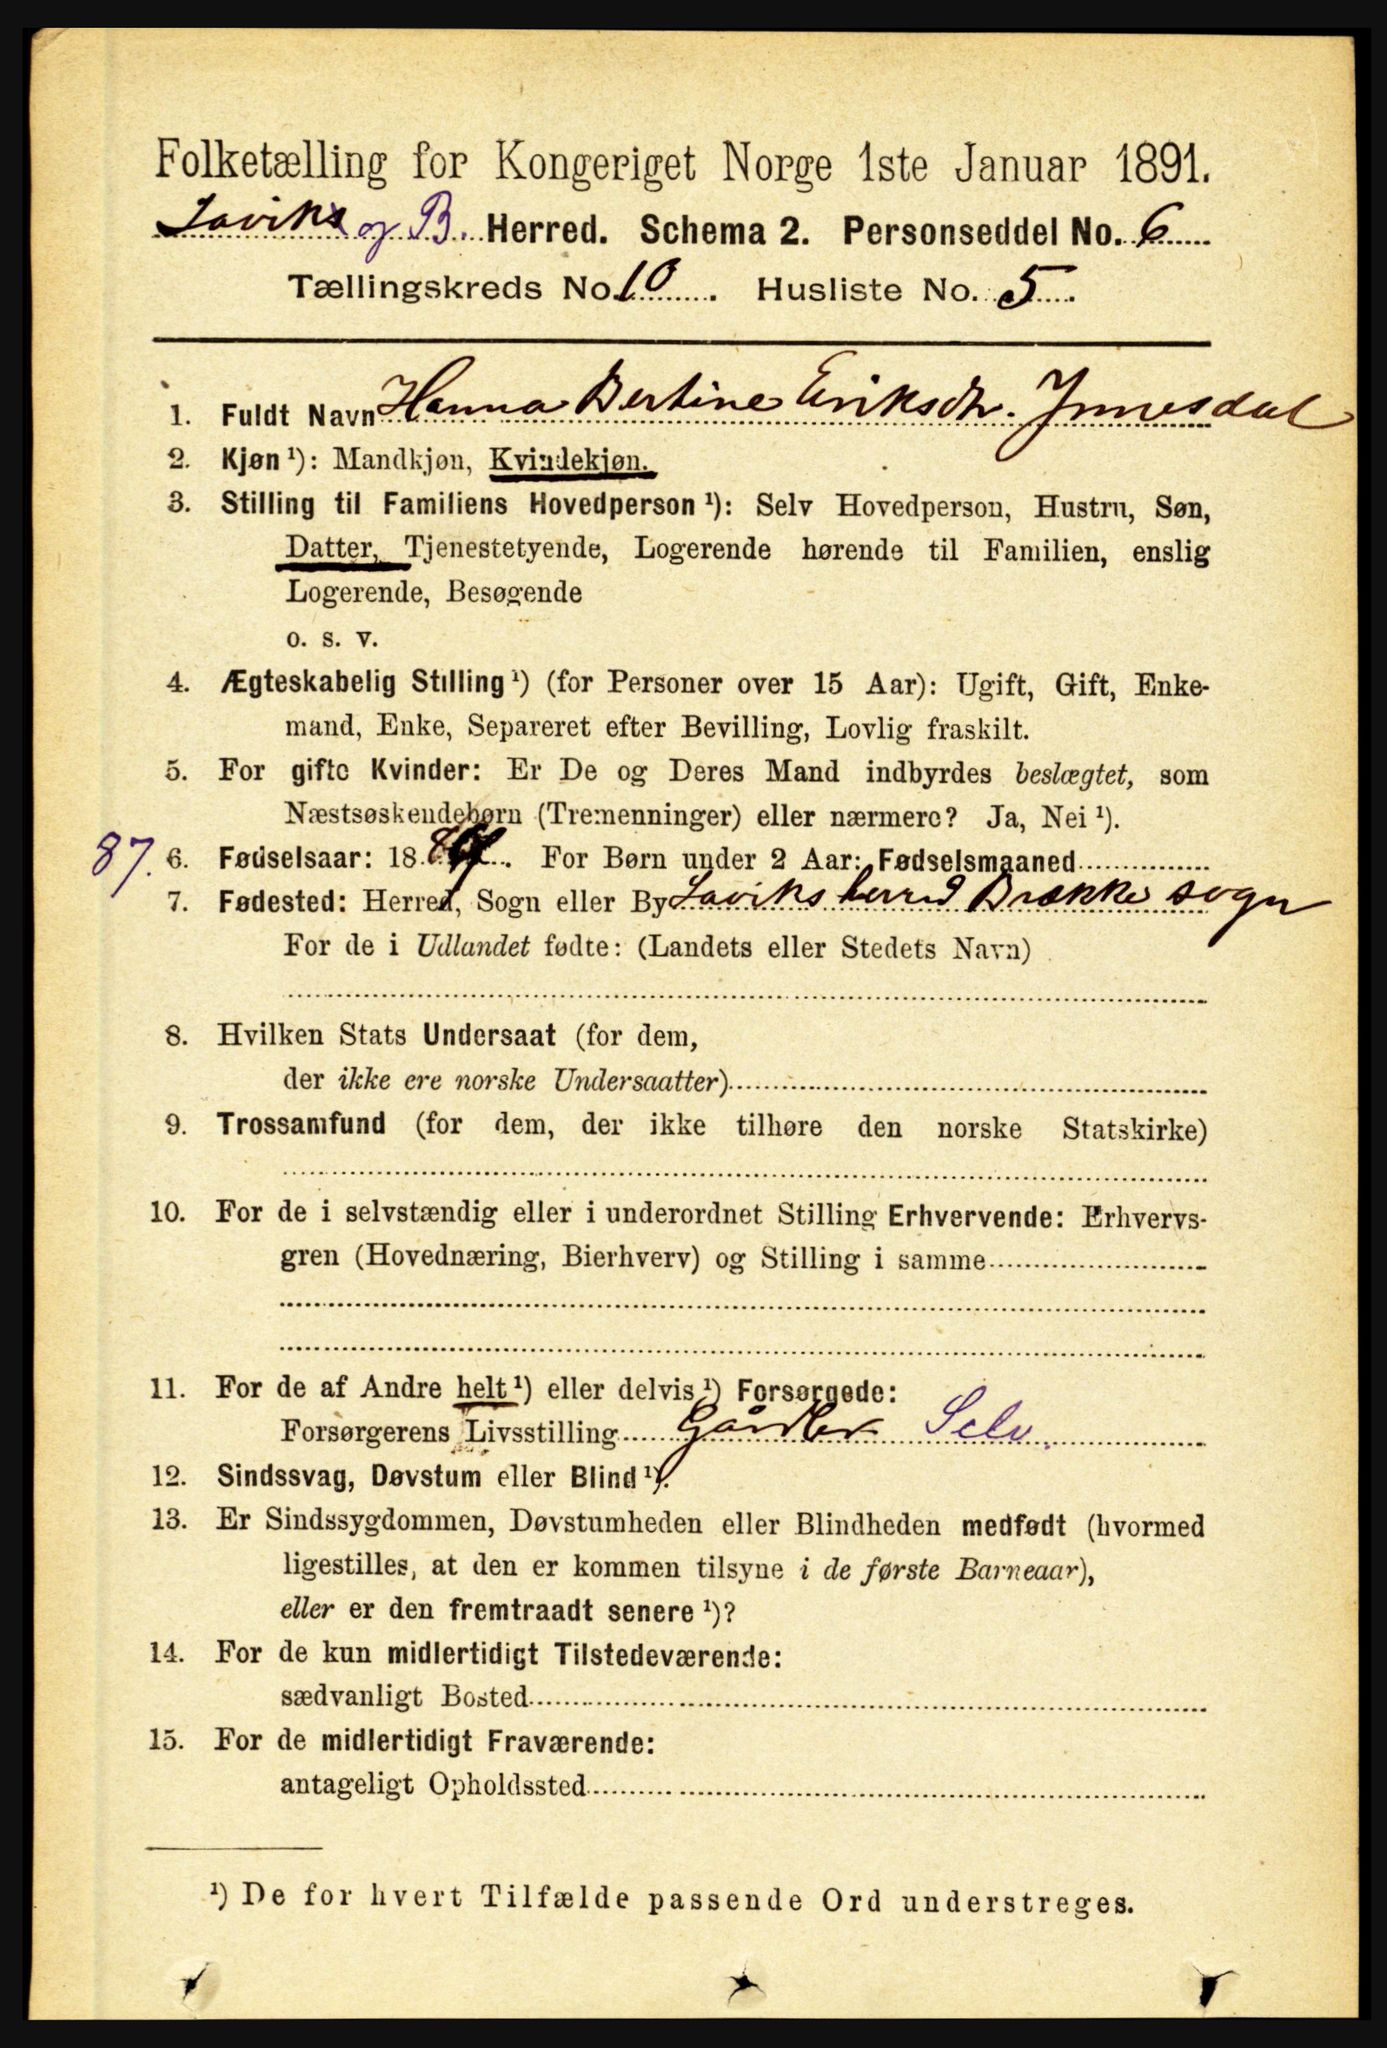 Folketælling for Kongeriget Norge 1ste Januar 1891.
Laviks og B. Herred. Schema 2. Personseddel No. 6
Tællingskreds No. 10. Husliste No. 5.
1. Fuldt Navn Hanna Bertine Eriksdtr. Ynnesdal
2. Kjøn ¹): Mandkjøn, Kvindekjøn.
3. Stilling til Familiens Hovedperson ¹): Selv Hovedperson, Hustru, Søn,
Datter, Tjenestetyende, Logerende hørende til Familien, enslig
Logerende, Besøgende
o. s. v.
4. Ægteskabelig Stilling ¹) (for Personer over 15 Aar): Ugift, Gift, Enke-
mand, Enke, Separeret efter Bevilling, Lovlig fraskilt.
5. For gifte Kvinder: Er De og Deres Mand indbyrdes beslægtet, som
Næstsøskendebørn (Tremenninger) eller nærmere? Ja, Nei ¹).
87. 6. Fødselsaar: 18 . For Børn under 2 Aar: Fødselsmaaned
7. Fødested: Herred, Sogn eller By Laviks herred Brække sogn
For de i Udlandet fødte: (Landets eller Stedets Navn)
8. Hvilken Stats Undersaat (for dem,
der ikke ere norske Undersaatter)
9. Trossamfund (for dem, der ikke tilhøre den norske Statskirke)
10. For de i selvstændig eller i underordnet Stilling Erhvervende: Erhvervs-
gren (Hovednæring, Bierhverv) og Stilling i samme
11. For de af Andre helt ¹) eller delvis ¹) Forsørgede:
Forsørgerens Livsstilling Gårdbr Selv.
12. Sindssvag, Døvstum eller Blind ¹).
13. Er Sindssygdommen, Døvstumheden eller Blindheden medfødt (hvormed
ligestilles, at den er kommen tilsyne i de første Barneaar),
eller er den fremtraadt senere ¹)?
14. For de kun midlertidigt Tilstedeværende:
sædvanligt Bosted
15. For de midlertidigt Fraværende:
antageligt Opholdssted
¹) De for hvert Tilfælde passende Ord understreges.